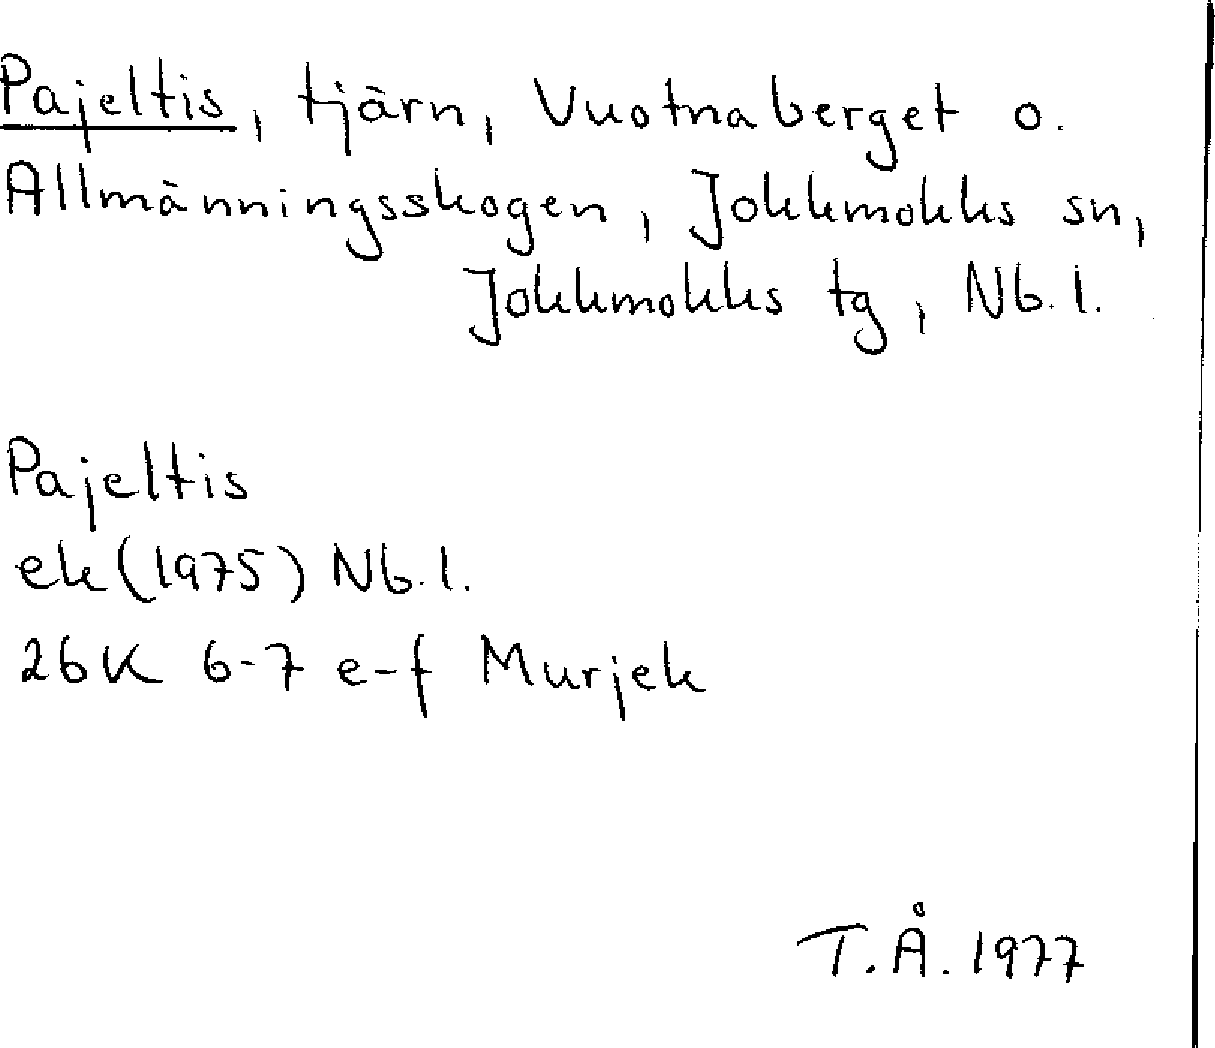 Pajeltis, tjärn, Vuotnaberget o.
Allmänningsskogen, Jokkmokks sn,
Jokkmokks tg, Nb. l.
Pajeltis
ek (1975) Nb. l.
26K 6-7 e-f Murjek
T.Å. 1977